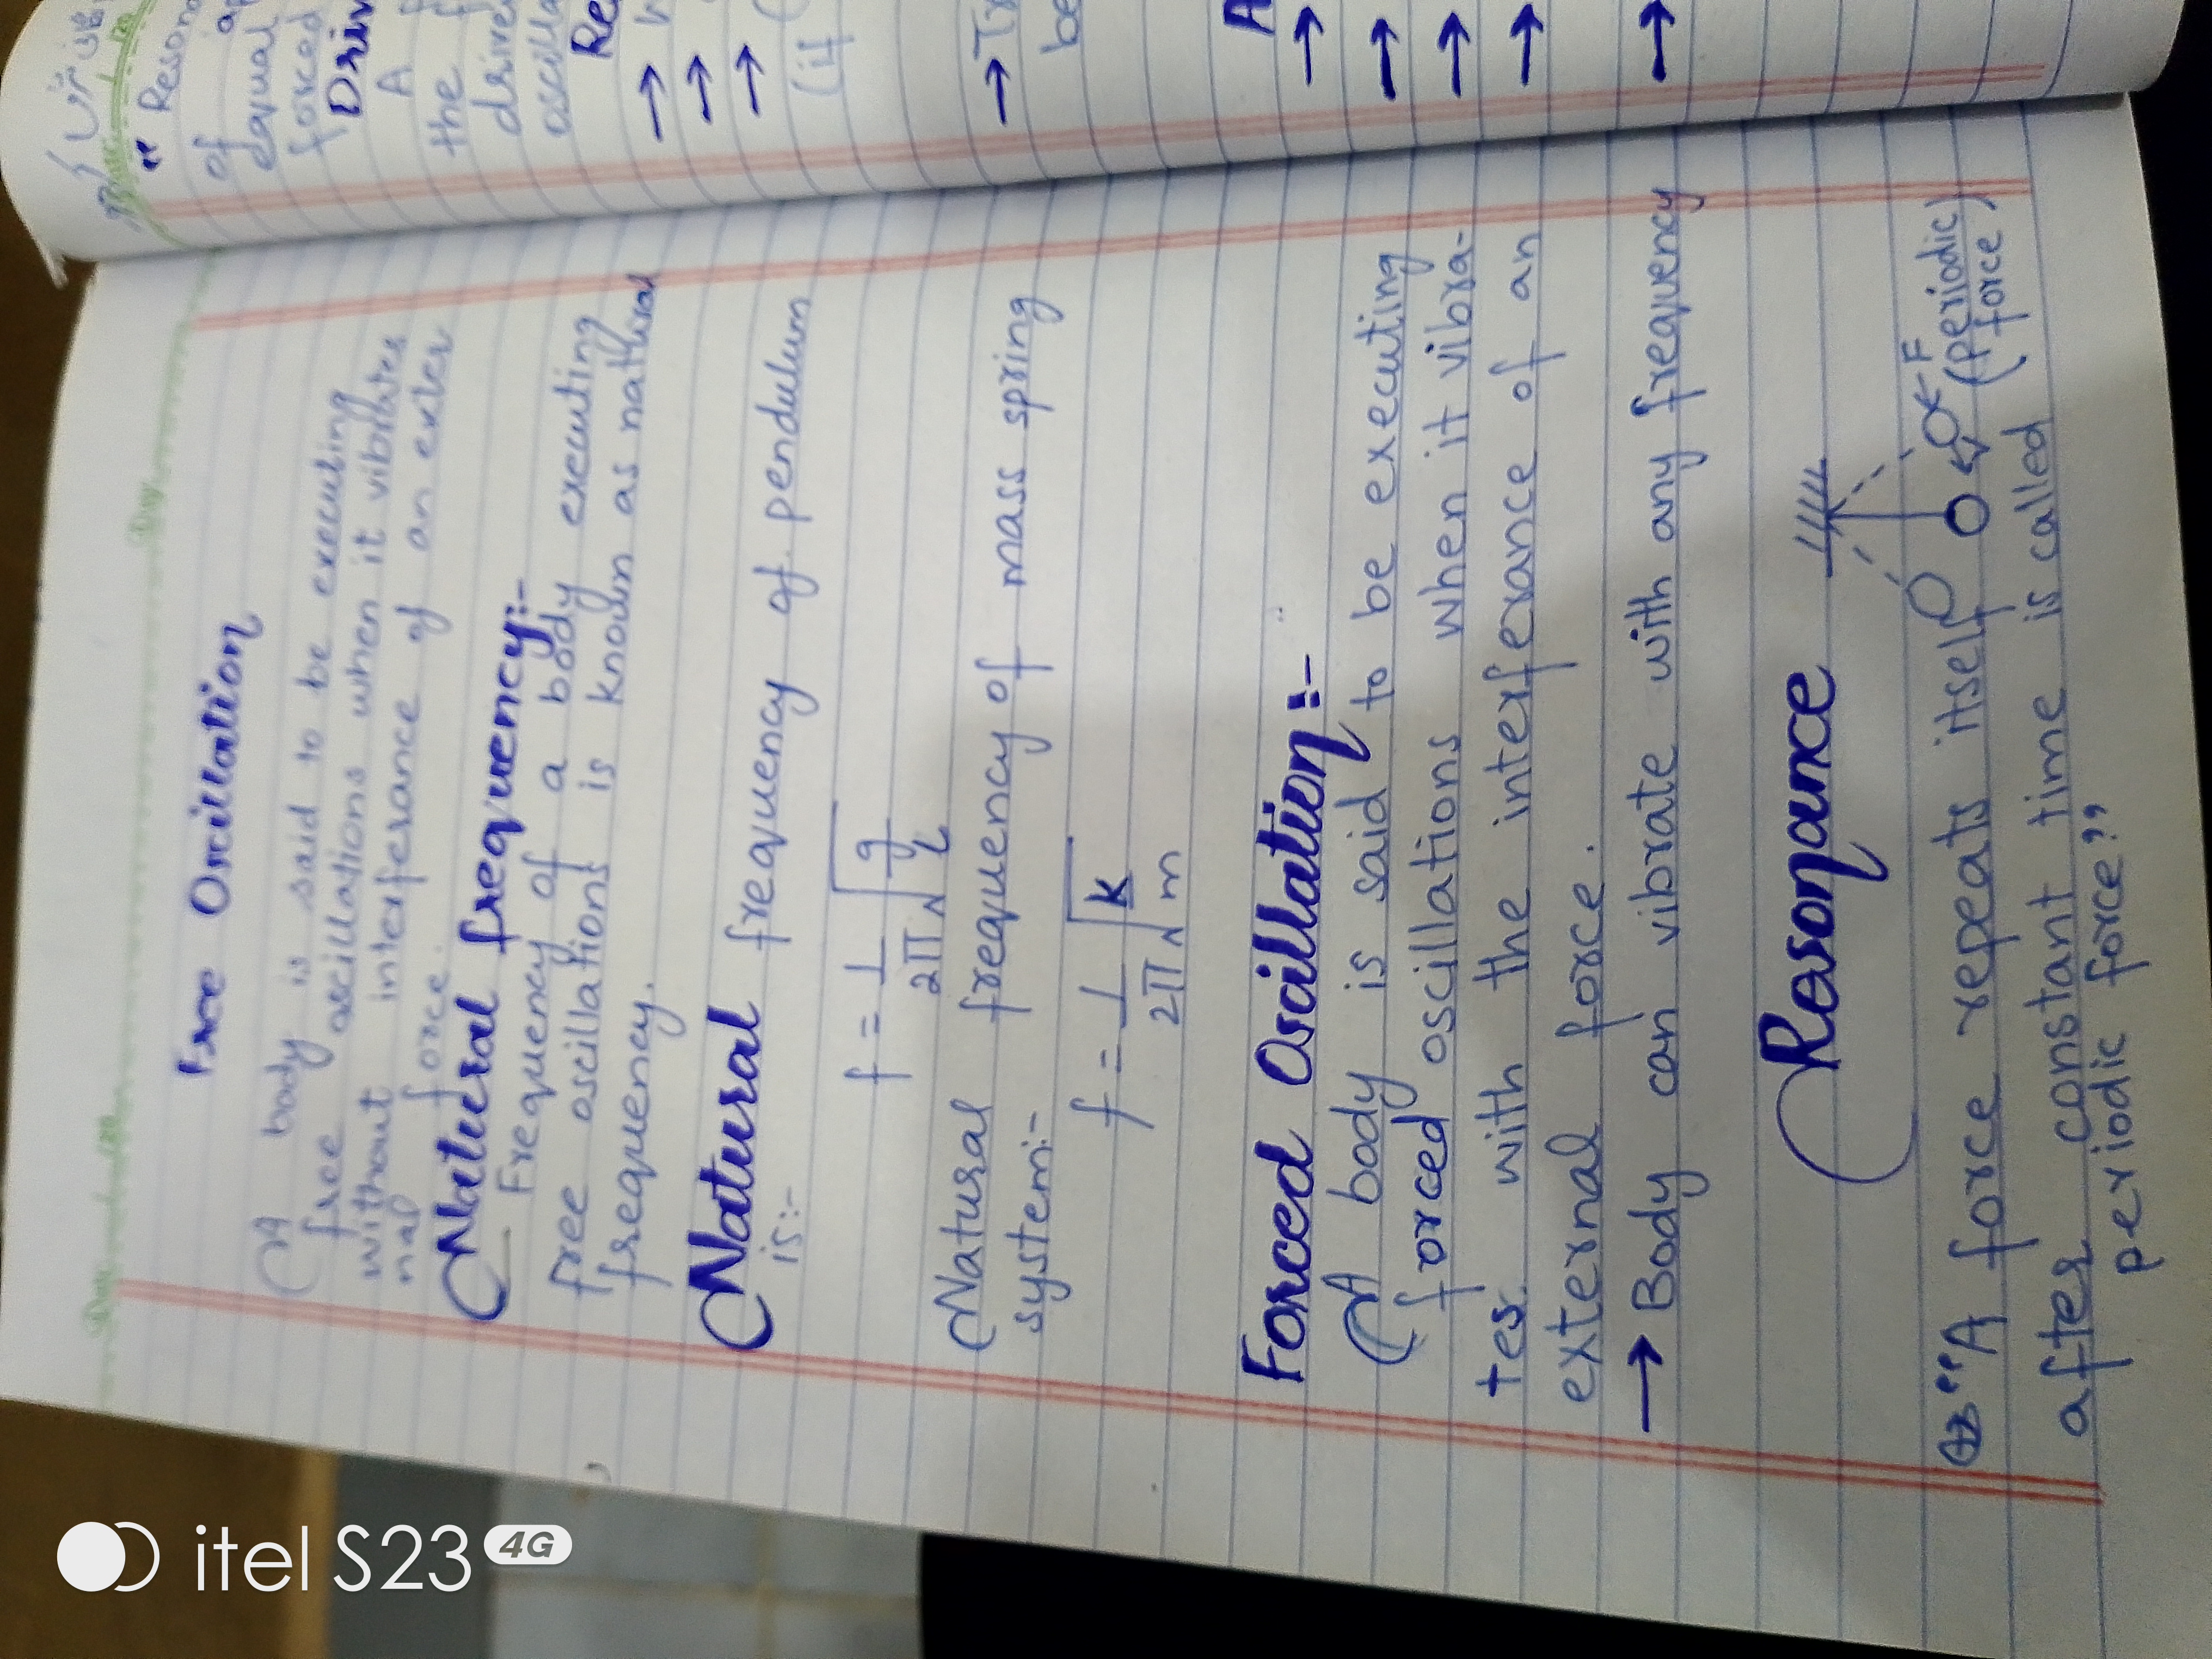 Free Oscillation
A body is said to be executing
free oscillations when it vibrates
without interferance of an exter
nal force.
Natural frequency:-
Frequency of a body executing
free oscillations is known as natural
frequency.
Natural frequency of pendulum
is:-
f = 1/2π √g/L
Natural frequency of mass spring
system:-
f = 1/2π √k/m
Forced Oscillation:-
A body is said to be executing
forced oscillations when it vibra-
tes with the interferance of an
external force.
→ Body can vibrate with any frequency
Resonance
F
(periodic)
(force)
"A force repeats itself
after constant time is called
periodic force"
" Reson
of ap
equal
forced
Driv
A f
the f
drive
oscilla
Re
→
→
→ (
(if
→ Tr
be
A
→
→
→
→
→
itel S23 4G